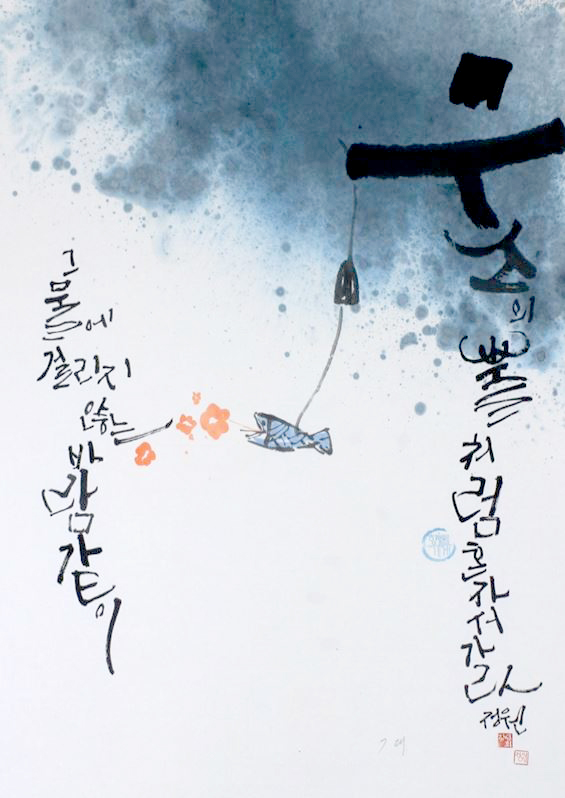 그물에
걸리지
않는
바람같이
무소의 뿔처럼 혼자서 가라
정원